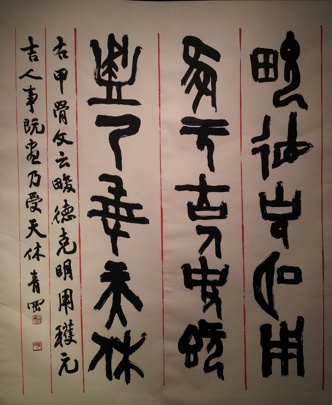 畯德克明用
獲元吉人事既
盡乃受天休
右甲骨文云畯德克明用獲元
吉人事既盡乃受天休 青